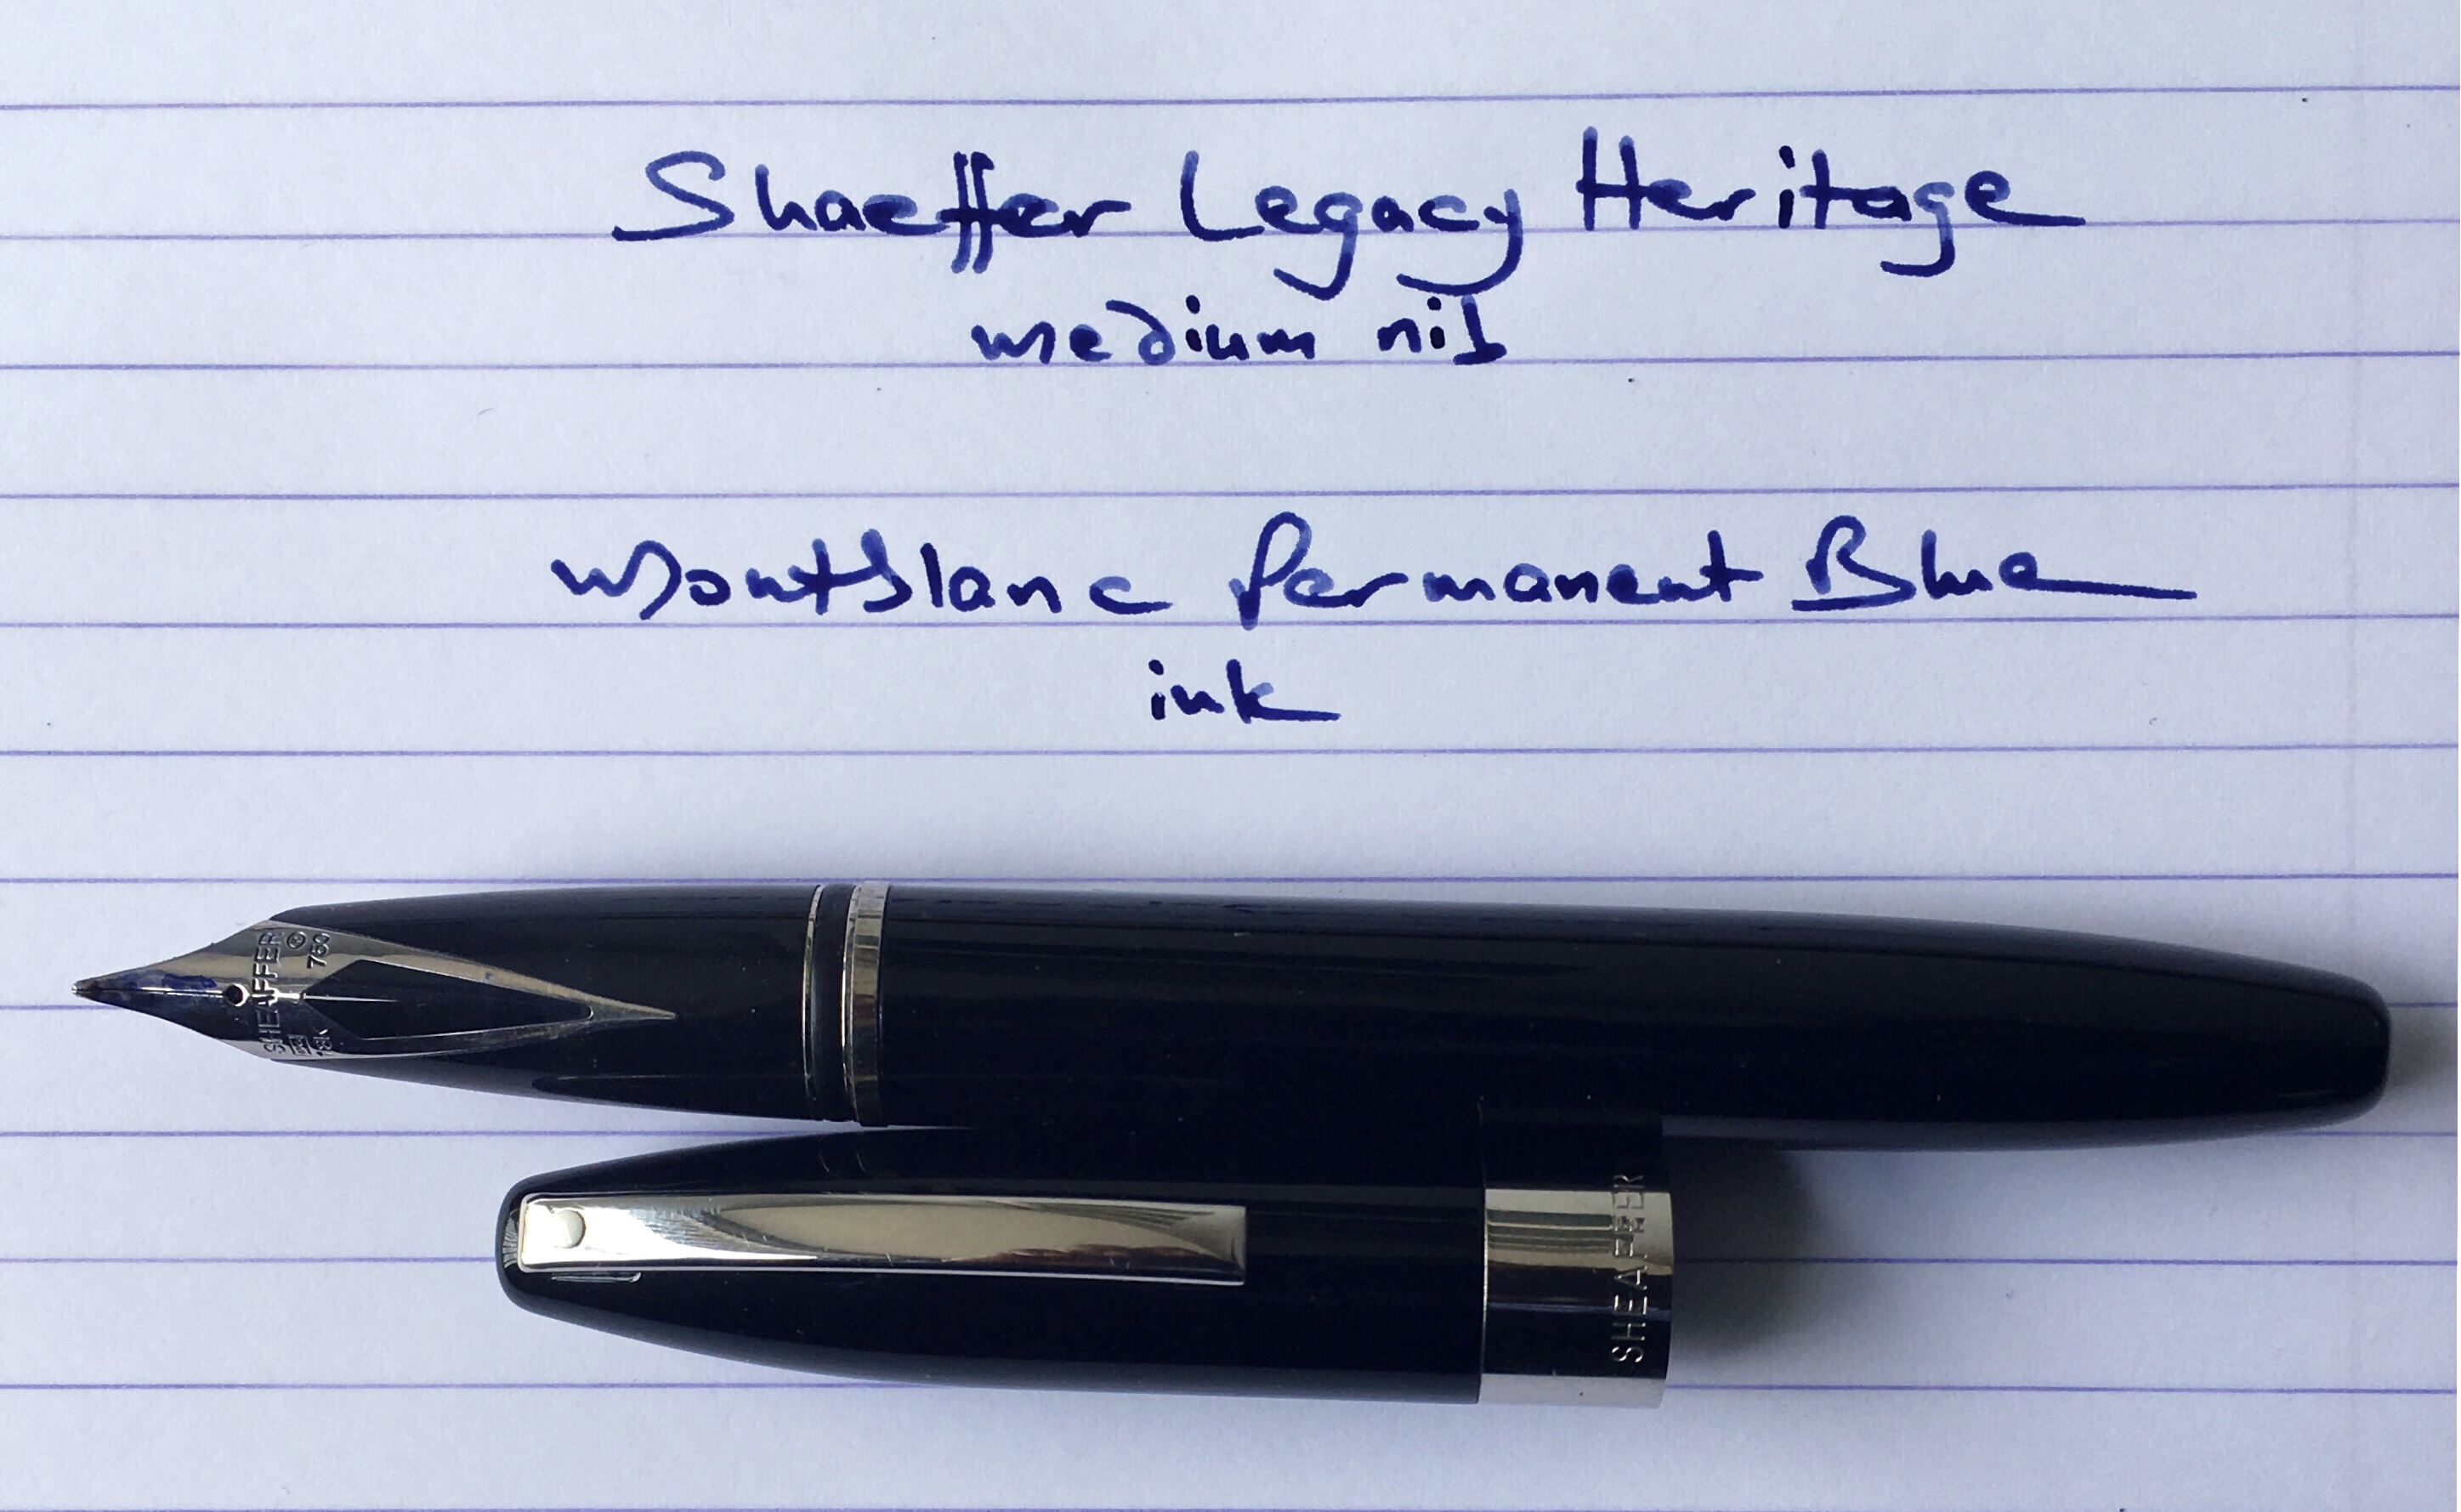 Shaeffer Legacy Heritage
medium nib
Montblanc Permanent Blue
ink
SHEAFFER
750
18K
SHEAFFER